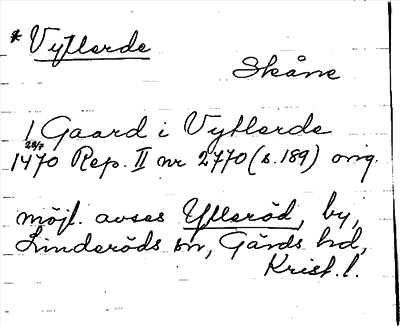 * Vyflerde
Skåne
1 Gaard i Vyflerde
28/7
1470 Rep. II nr 2770 (s. 189) orig.
möjl. avses Ylleröd, by,
Linderöds sn, Gärds hd,
Krist. l.